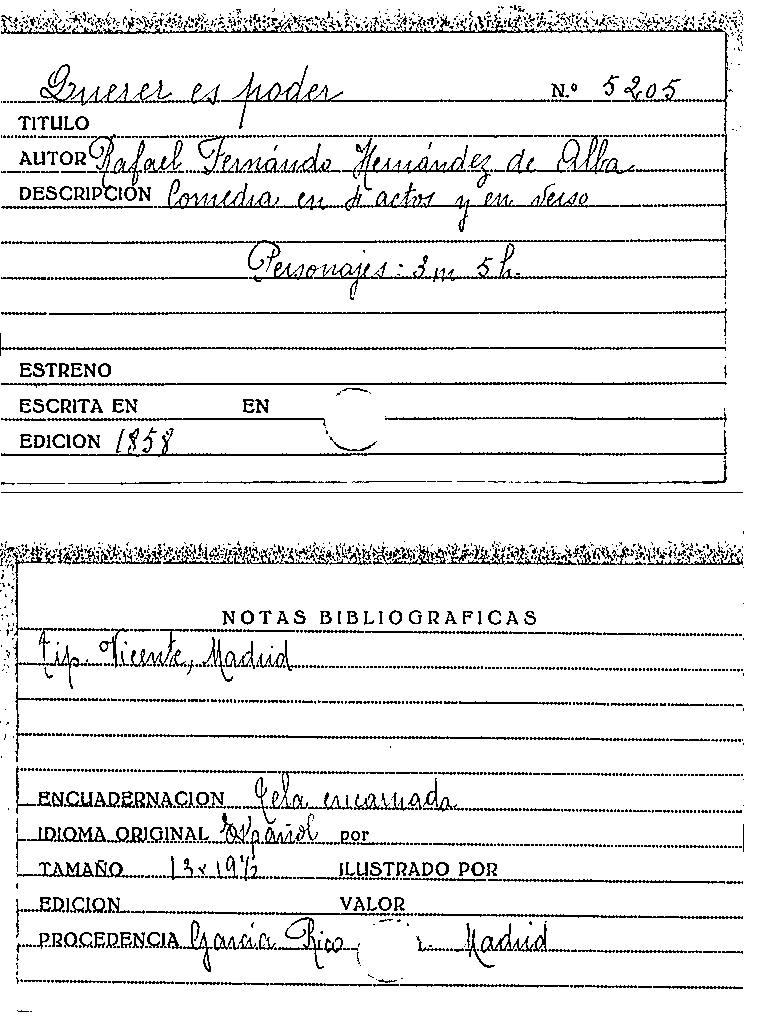 Querer es poder N.º 5205
TITULO
AUTOR Rafael Fernándo Hernández de Alba
DESCRIPCIÓN Comedia en 4 actos y en verso
Personajes: 3 m 5 h.
ESTRENO
ESCRITA EN EN
EDICION 1858
NOTAS BIBLIOGRAFICAS
Tip. Vicente, Madrid
ENCUADERNACION Tela encarnada
IDIOMA ORIGINAL Español por
TAMAÑO 13 x 19½ ILUSTRADO POR
EDICION VALOR
PROCEDENCIA García Rico, Madrid